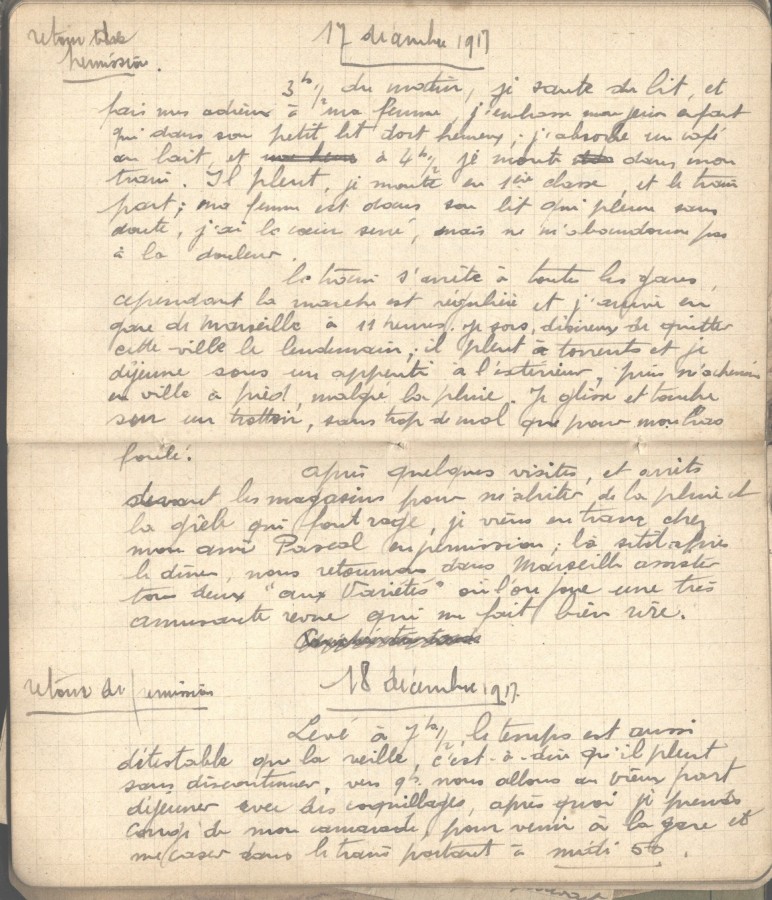 retour de permission.
17 décembre 1917
3hs 1/2 du matin, je saute du lit, et
fais mes adieux à ma femme, j'embrasse mon enfant
qui dans son petit lit dort heureux ; j'absorbe un café
au lait, et à 4h 1/2 je monte dans mon
train. Il pleut, je monte en 1ère classe, et le train
part ; ma femme est dans son lit qui pleure sans
doute, j'ai le cœur serré, mais ne m'abandonne pas
à la douleur.
Le train s'arrête à toutes les gares,
cependant la marche est régulière et j'arrive en
gare de Marseille à 11 heures. Je sors, désireux de quitter
cette ville le lendemain ; il pleut à torrents et je
déjeune sous un appenti à l'extérieur, puis m'achemine
en ville à pied, malgré la pluie. Je glisse et tombe
sur un trottoir, sans trop de mal que pour mon bras
foulé.
Après quelques visites, et arrêts
devant les magasins pour m'abriter de la pluie et
la grêle qui font rage, je viens en tram chez
mon ami Pascal en permission ; là sitôt après
le dîner, nous retournons dans Marseille assister
tous deux "aux Variétés" où l'on joue une très
amusante revue qui me fait bien rire.
retour de permission
18 décembre 1917.
Levé à 7hs 1/2, le temps est aussi
détestable que la veille, c'est-à-dire qu'il pleut
sans discontinuer, vers 9h nous allons au vieux port
déjeuner avec des coquillages, après quoi je prends
congé de mon camarade, pour venir à la gare et
me caser dans le train partant à midi 50.